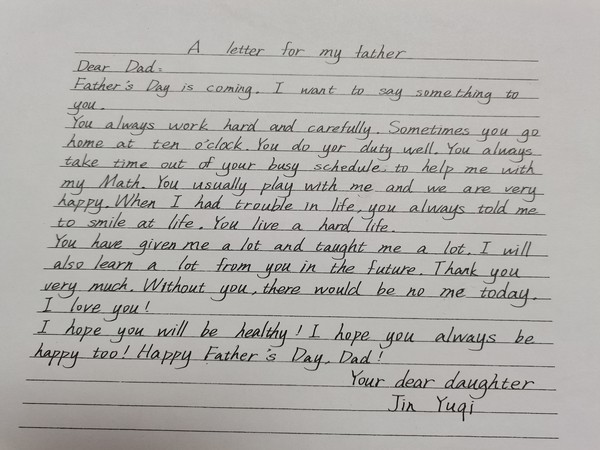 A letter for my father
Dear Dad:
Father's Day is coming. I want to say something to
you.
You always work hard and carefully. Sometimes you go
home at ten o'clock. You do yor duty well. You always
take time out of your busy schedule to help me with
my Math. You usually play with me and we are very
happy. When I had trouble in life, you always told me
to smile at life. You live a hard life.
You have given me a lot and taught me a lot. I will
also learn a lot from you in the future. Thank you
very much. Without you, there would be no me today.
I love you!
I hope you will be healthy! I hope you always be
happy too! Happy Father's Day, Dad!
Your dear daughter
Jin Yuqi